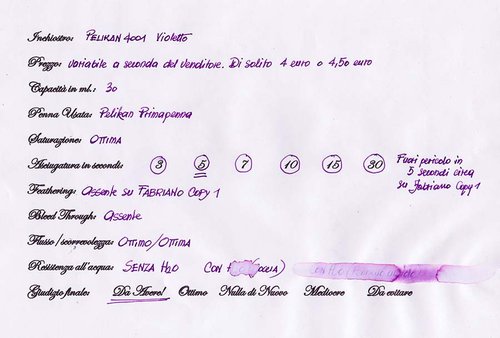 Inchiostro: PELIKAN 4001 Violetto
Prezzo: variabile a seconda del venditore. Di solito 4 euro o 4,50 euro
Capacità in ml.: 30
Penna Usata: Pelikan Primapenna
Saturazione: OTTIMA
Asciugatura in secondi: 3 5 7 10 15 30 Fuori pericolo in
5 secondi circa
su Fabriano Copy 1
Feathering: Assente su FABRIANO COPY 1
Bleed Through: Assente
Flusso/scorrevolezza: OTTIMO/OTTIMA
Resistenza all'acqua: SENZA H2O CON
Giudizio finale: Da Avere! Ottimo Nulla di Nuovo Mediocre Da evitare